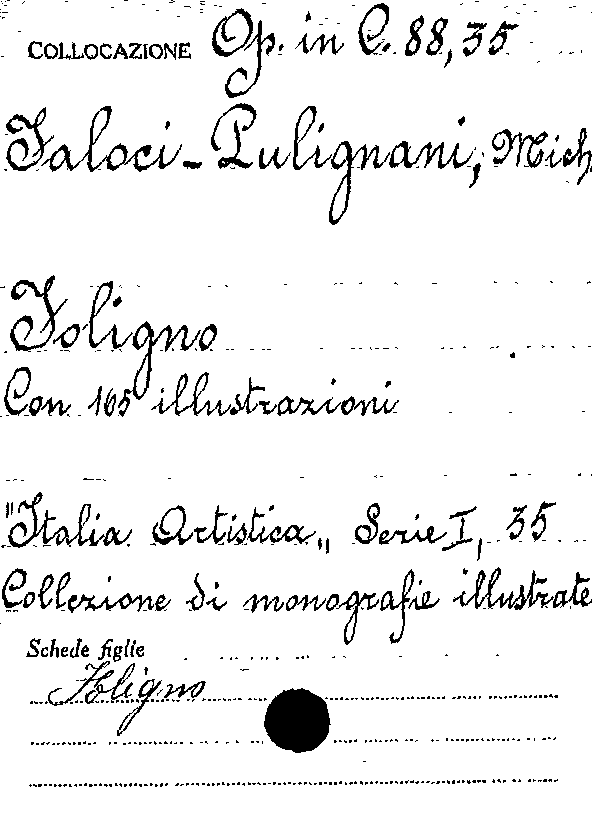 COLLOCAZIONE Op. in C. 88,35
Faloci-Pulignani, Mich.
Foligno
Con 165 illustrazioni
"Italia Artistica„ Serie I, 35
Collezione di monografie illustrate
Schede figlie
Foligno